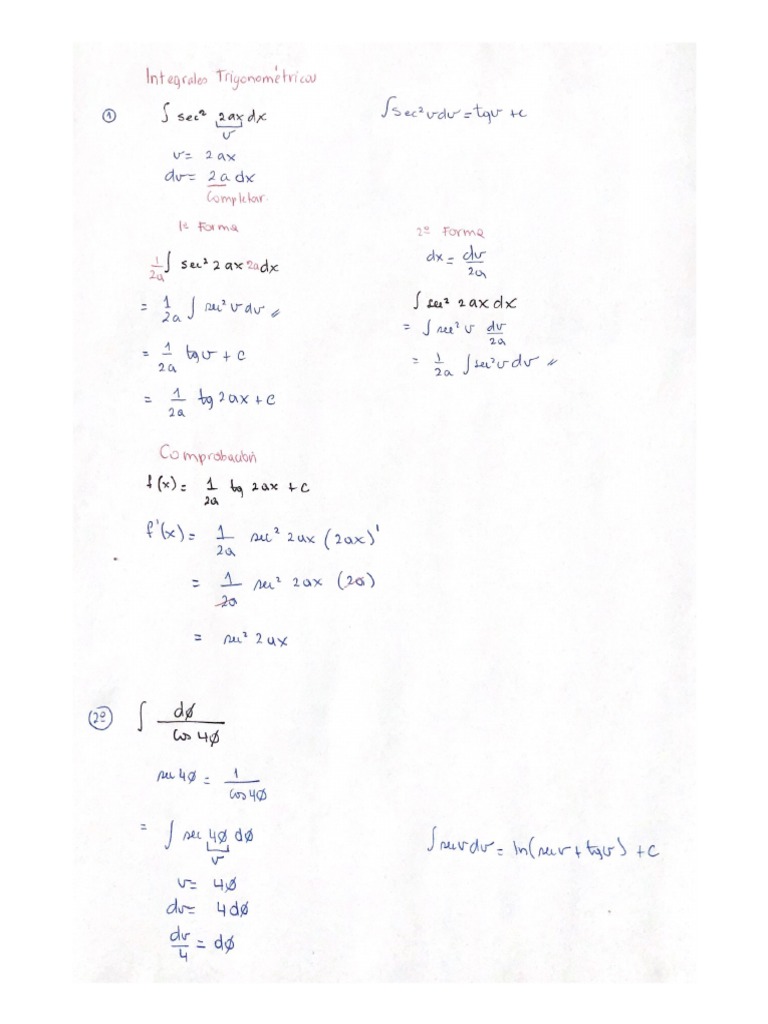 Integrales Trigonométricas
① ∫ sec² 2ax dx
v
∫sec²vdv = tgv + c
v = 2ax
dv = 2a dx
Completar.
1ª Forma
1/2a ∫ sec² 2ax 2a dx
= 1/2a ∫ sec² v dv //
= 1/2a tgv + c
= 1/2a tg 2ax + c
2ª Forma
dx = dv/2a
∫ sec² 2ax dx
= ∫ sec² v dv/2a
= 1/2a ∫ sec² v dv //
Comprobación
f(x) = 1/2a tg 2ax + c
f'(x) = 1/2a sec² 2ax (2ax)'
= 1/2a sec² 2ax (2a)
= sec² 2ax
2º ∫ dø/cos 4ø
sec 4ø = 1/cos 4ø
= ∫ sec 4ø dø
v
∫ sec v dv = ln(sec v + tg v) + c
v = 4ø
dv = 4dø
dv/4 = dø